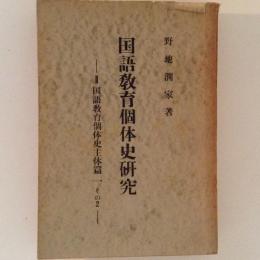 野地潤家著
国語教育個体史研究
―Ⅱ国語教育個体史主体篇一 その2―